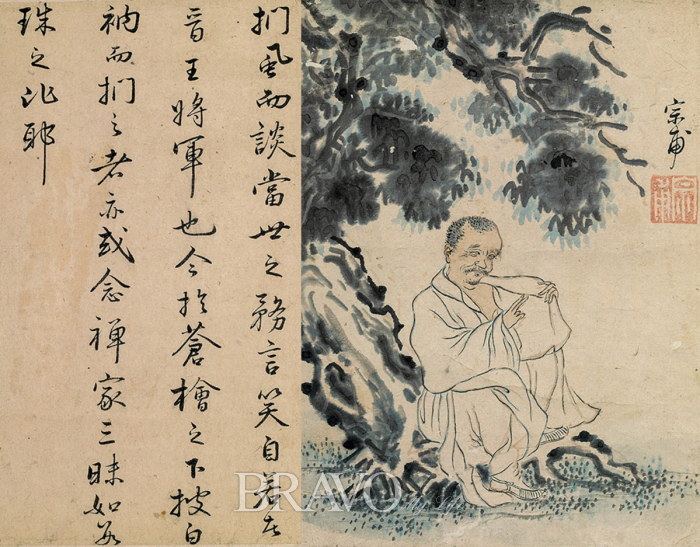 捫虱而談當世之務言笑自若者
晉王將軍也今於蒼檜之下披白
衲而捫之者亦或念禪家三昧如數
珠之耶
宗甫
BRAVO